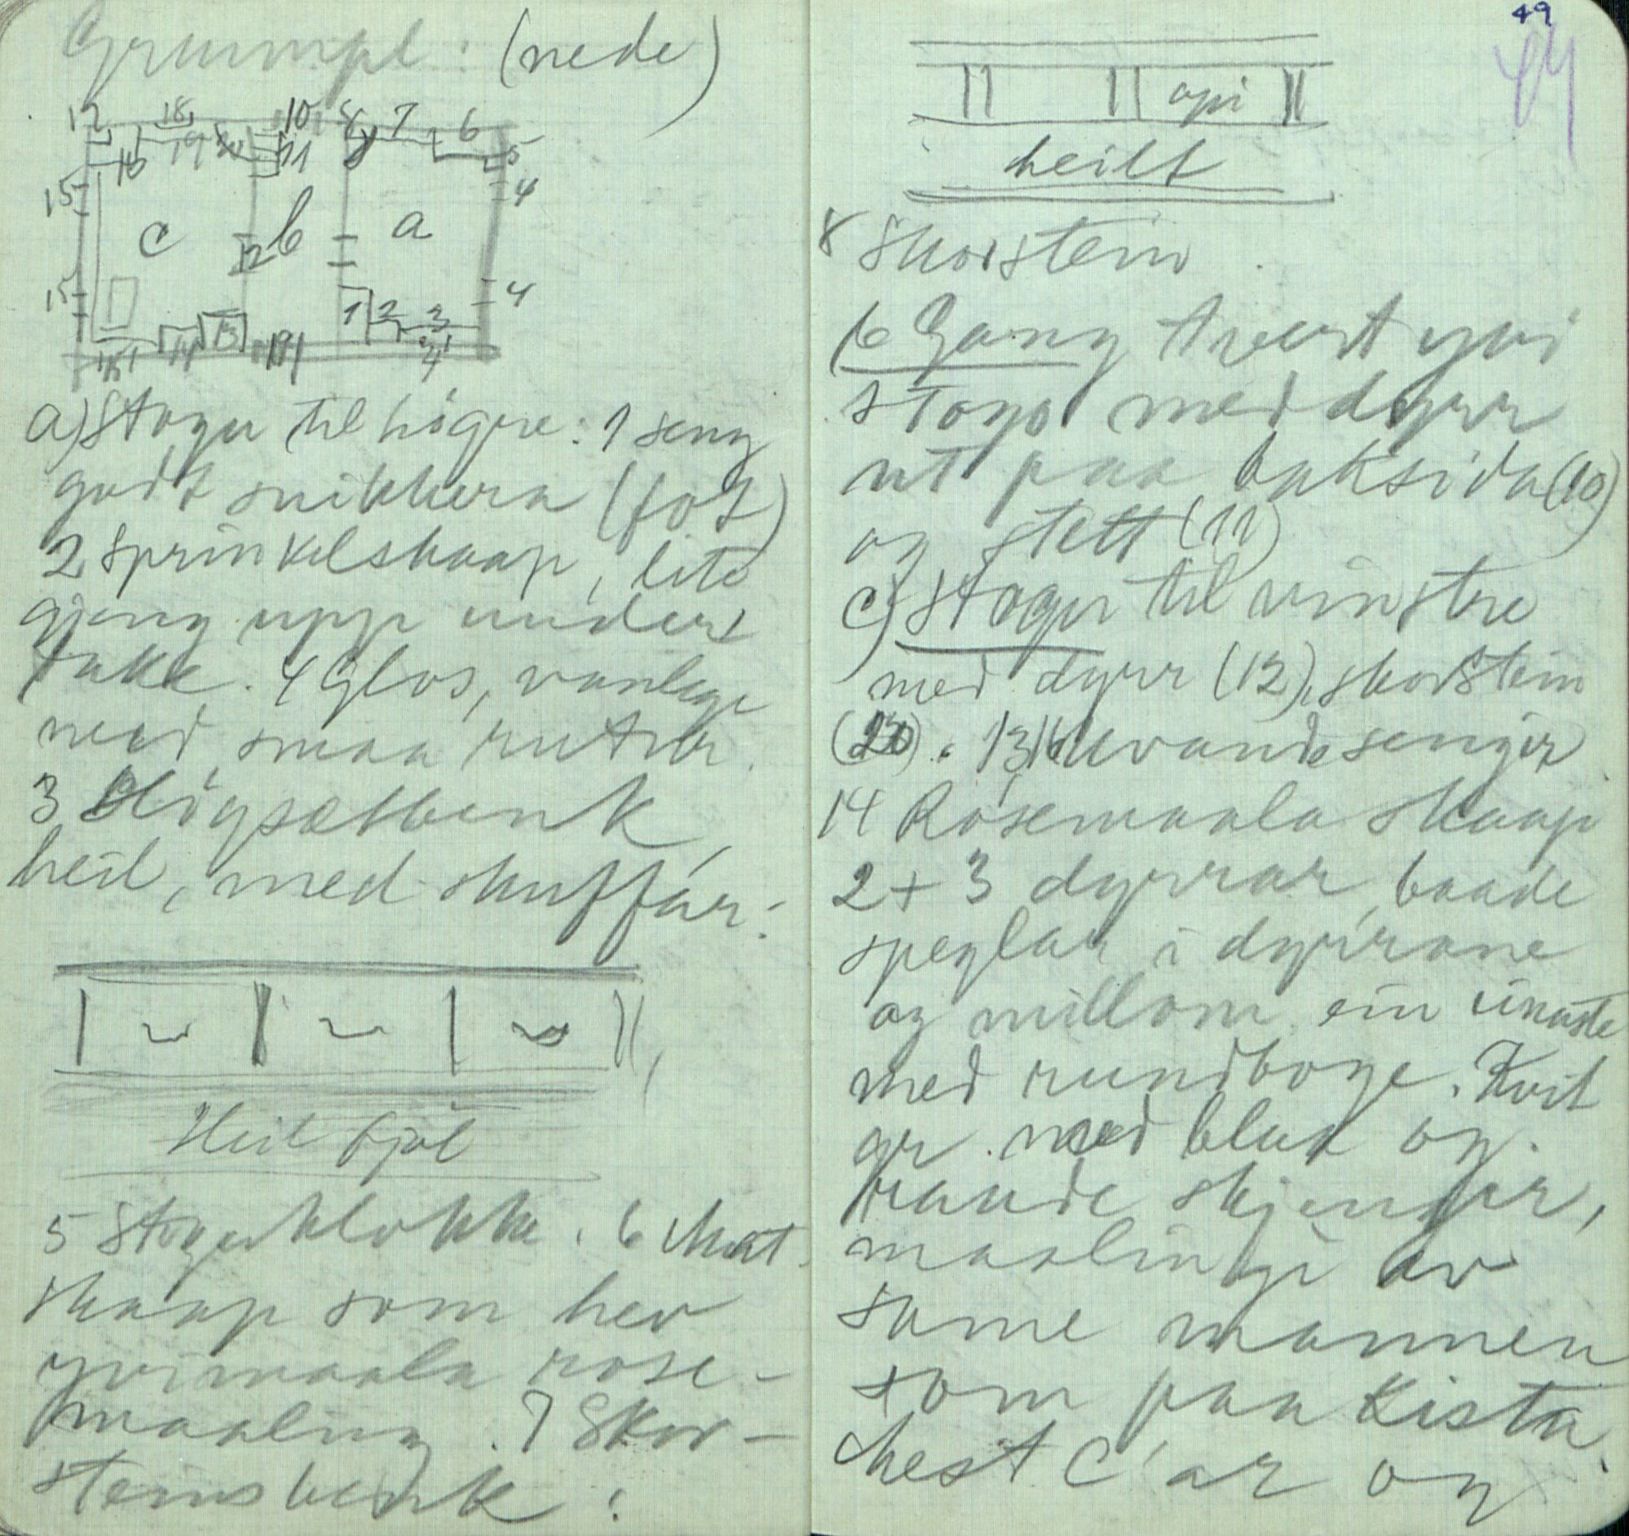 Grunnpl: (nede)
12 18 10 8 7 6
16 19 20 11 9 5
15 4
c b a
12
15 4
1 2 3
16 14 13 19 4
a) Stogu til högre: 1 seng
godt snikkera (fot)
2 sprinkelskaap, lite
gjeng upp under
take. 4 Glas, vanlege
med smaa rutur.
3 Högsætbenk
heil, med skuffar:
Heil fjöl
5 Stogeklokke. 6 Mat
skaap som hev
yvimaala rose-
maaling. 7 Skor-
steinsbenk:
49
44
opi
heilt
8 Skorstein
b Gang tvert yvi
stogo med dyrr
ut paa baksida (10)
og stett (11)
c) Stogu til vinstre
med dyrr (12), skorstein
(20). 13, 16 Uvande senger
14 Rosemaala skaap
2 + 3 dyrrar, baade
speglar i dyrrane
og millom ein einaste
med rundboge. Kvit
gr. med blaa og
raude skjengur,
maalingi av
same mannen
som paa Kista.
hest C ar og